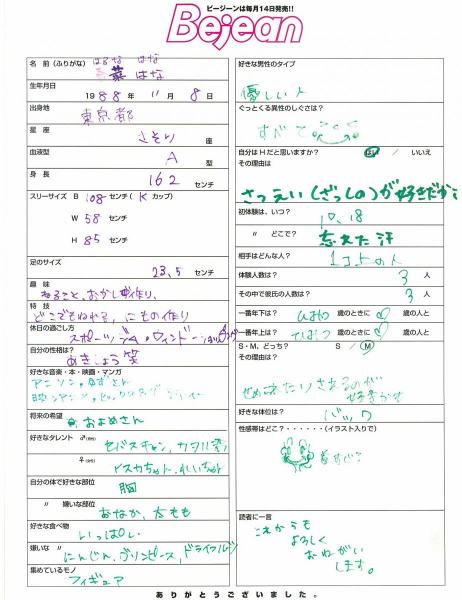 ビージーンは毎月14日発売!!
Bejean
名 前 (ふりがな) はるな はな
春菜 はな
生年月日
1988年 11月 8日
出身地
東京都
星 座
さそり 座
血液型
A 型
身 長
162 センチ
スリーサイズ B 108 センチ ( K カップ)
W 58 センチ
H 85 センチ
足のサイズ
23.5 センチ
趣 味
ねること、おかし作り、
特 技
どこでもねれる、にもの作り
休日の過ごし方
スポーツジム・ウィンドーショッピング
自分の性格は?
めきしょう笑
好きな音楽・本・映画・マンガ
アニソン
将来の希望
およめさん
好きなタレント ♂(男性)
セバスチャン、
♀(女性)
自分の体で好きな部位
胸
〃 嫌いな部位
おなか、太もも
好きな食べ物
いっぱい
嫌いな 〃
にんじん、グリンピース、ドライフルーツ
集めているモノ
フィギュア
好きな男性のタイプ
優しい人
ぐっとくる異性のしぐさは?
すべて
自分はHだと思いますか? はい / いいえ
その理由は
さつえい(ざっしの)が好きだから
初体験は、いつ?
10、18
〃 どこで?
忘えた汗
相手はどんな人?
1コ上の人
体験人数は?
3 人
その中で彼氏の人数は?
3 人
一番年下は? ひみつ 歳のときに ♡ 歳の人と
一番年上は? ひみつ 歳のときに ♡ 歳の人と
S・M、どっち? S / M
その理由は?
せめ
好きな体位は?
バック
性感帯はどこ?・・・・・・(イラスト入りで)
読者に一言
これからも
よろしく
おねがい
します。
ありがとうございました。